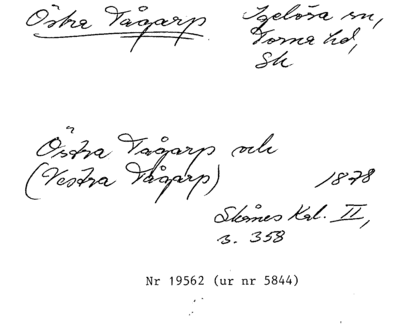 Östra Tågarp Igelösa sn,
Torna hd,
Sk
Östra Tågarp och
(Vestra Tågarp) 1878
Skånes Kal. II,
s. 358
Nr 19562 (ur nr 5844)